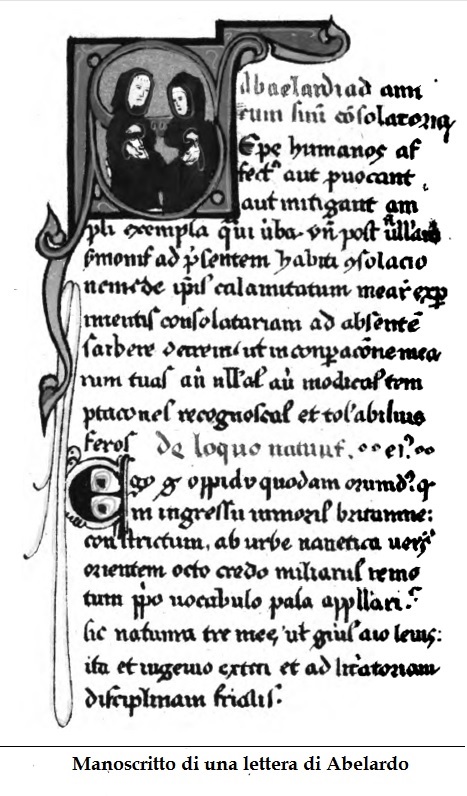 Abaelardi ad ami
cum suu͂ co͂solatoria
Epe humanos af
fect᷒ aut p̱uocant
aut mitigant am
pli exempla qͣ uͥba. Vn̄ post nͫullam
ẜmonis ad p̄sentem habiti ꝯsolacio
nem de ip̄is calamitatum mearͬ exp̱
imentis consolatariam ad absente͂
scribere decreui ut in conp̱acōne mea
rum tuas aū nll'as aū modicas tem
ptacones recognoscas et tol'abilius
feros de loquo natiuit.
Ego g° oppidu quodam oriund᷒ qͥ
in ingressu minoris britannie:
constrictum, ab urbe nanetica uersͫ
orientem octo credo miliariis remo
tum p̱p̱o uocabulo pala appll'ari.
sic natura tre mee, ut gn̄is aīo leuis:
ita et ingenio extiti et ad litͬatoriam
disciplinam facilis.
Manoscritto di una lettera di Abelardo